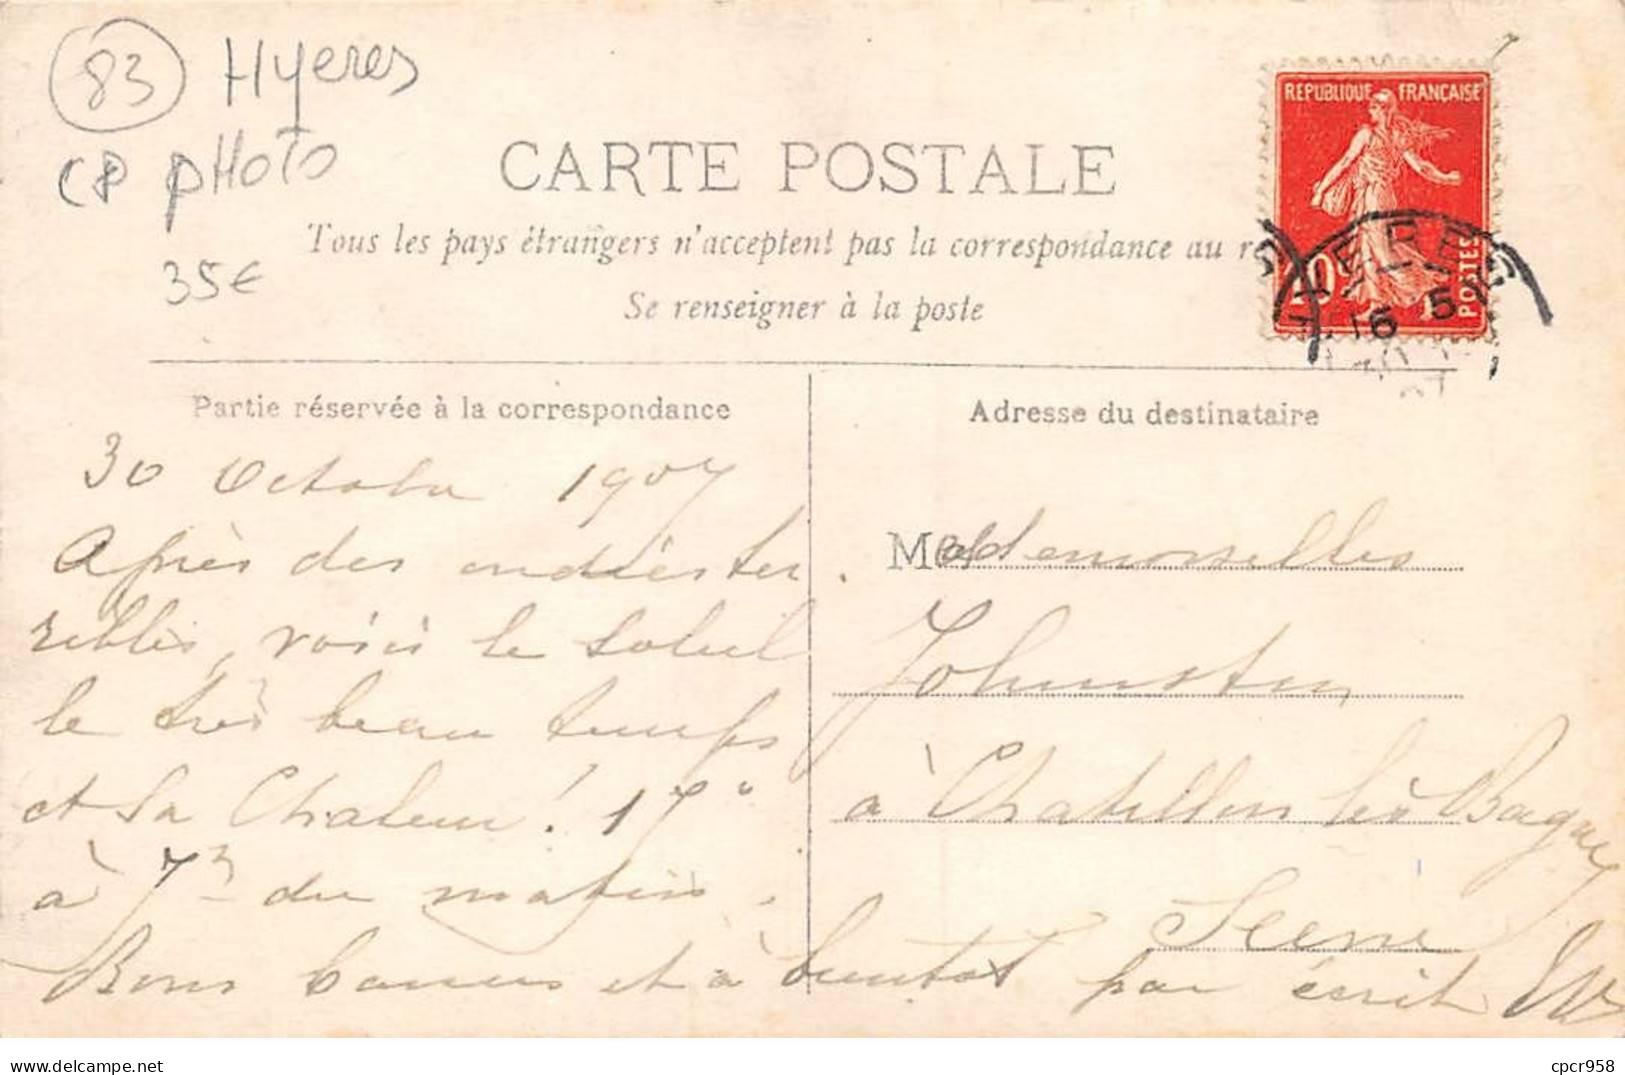 83 Hyeres
CP PHOTO
35€
CARTE POSTALE
Tous les pays étrangers n'acceptent pas la correspondance au
Se renseigner à la poste
REPUBLIQUE FRANÇAISE
POSTES
10c
6 5
Partie réservée à la correspondance
30 Octobre 1907
Après des ter
ribles, voici le soleil
le très beau temps
et la chaleur! 17°
à 7h du matin.
Bons baisers et à bientôt par écrit
Adresse du destinataire
Mesdemoiselles
Johnston
à Chatillon lès Bagneux
Seine
cpcr958